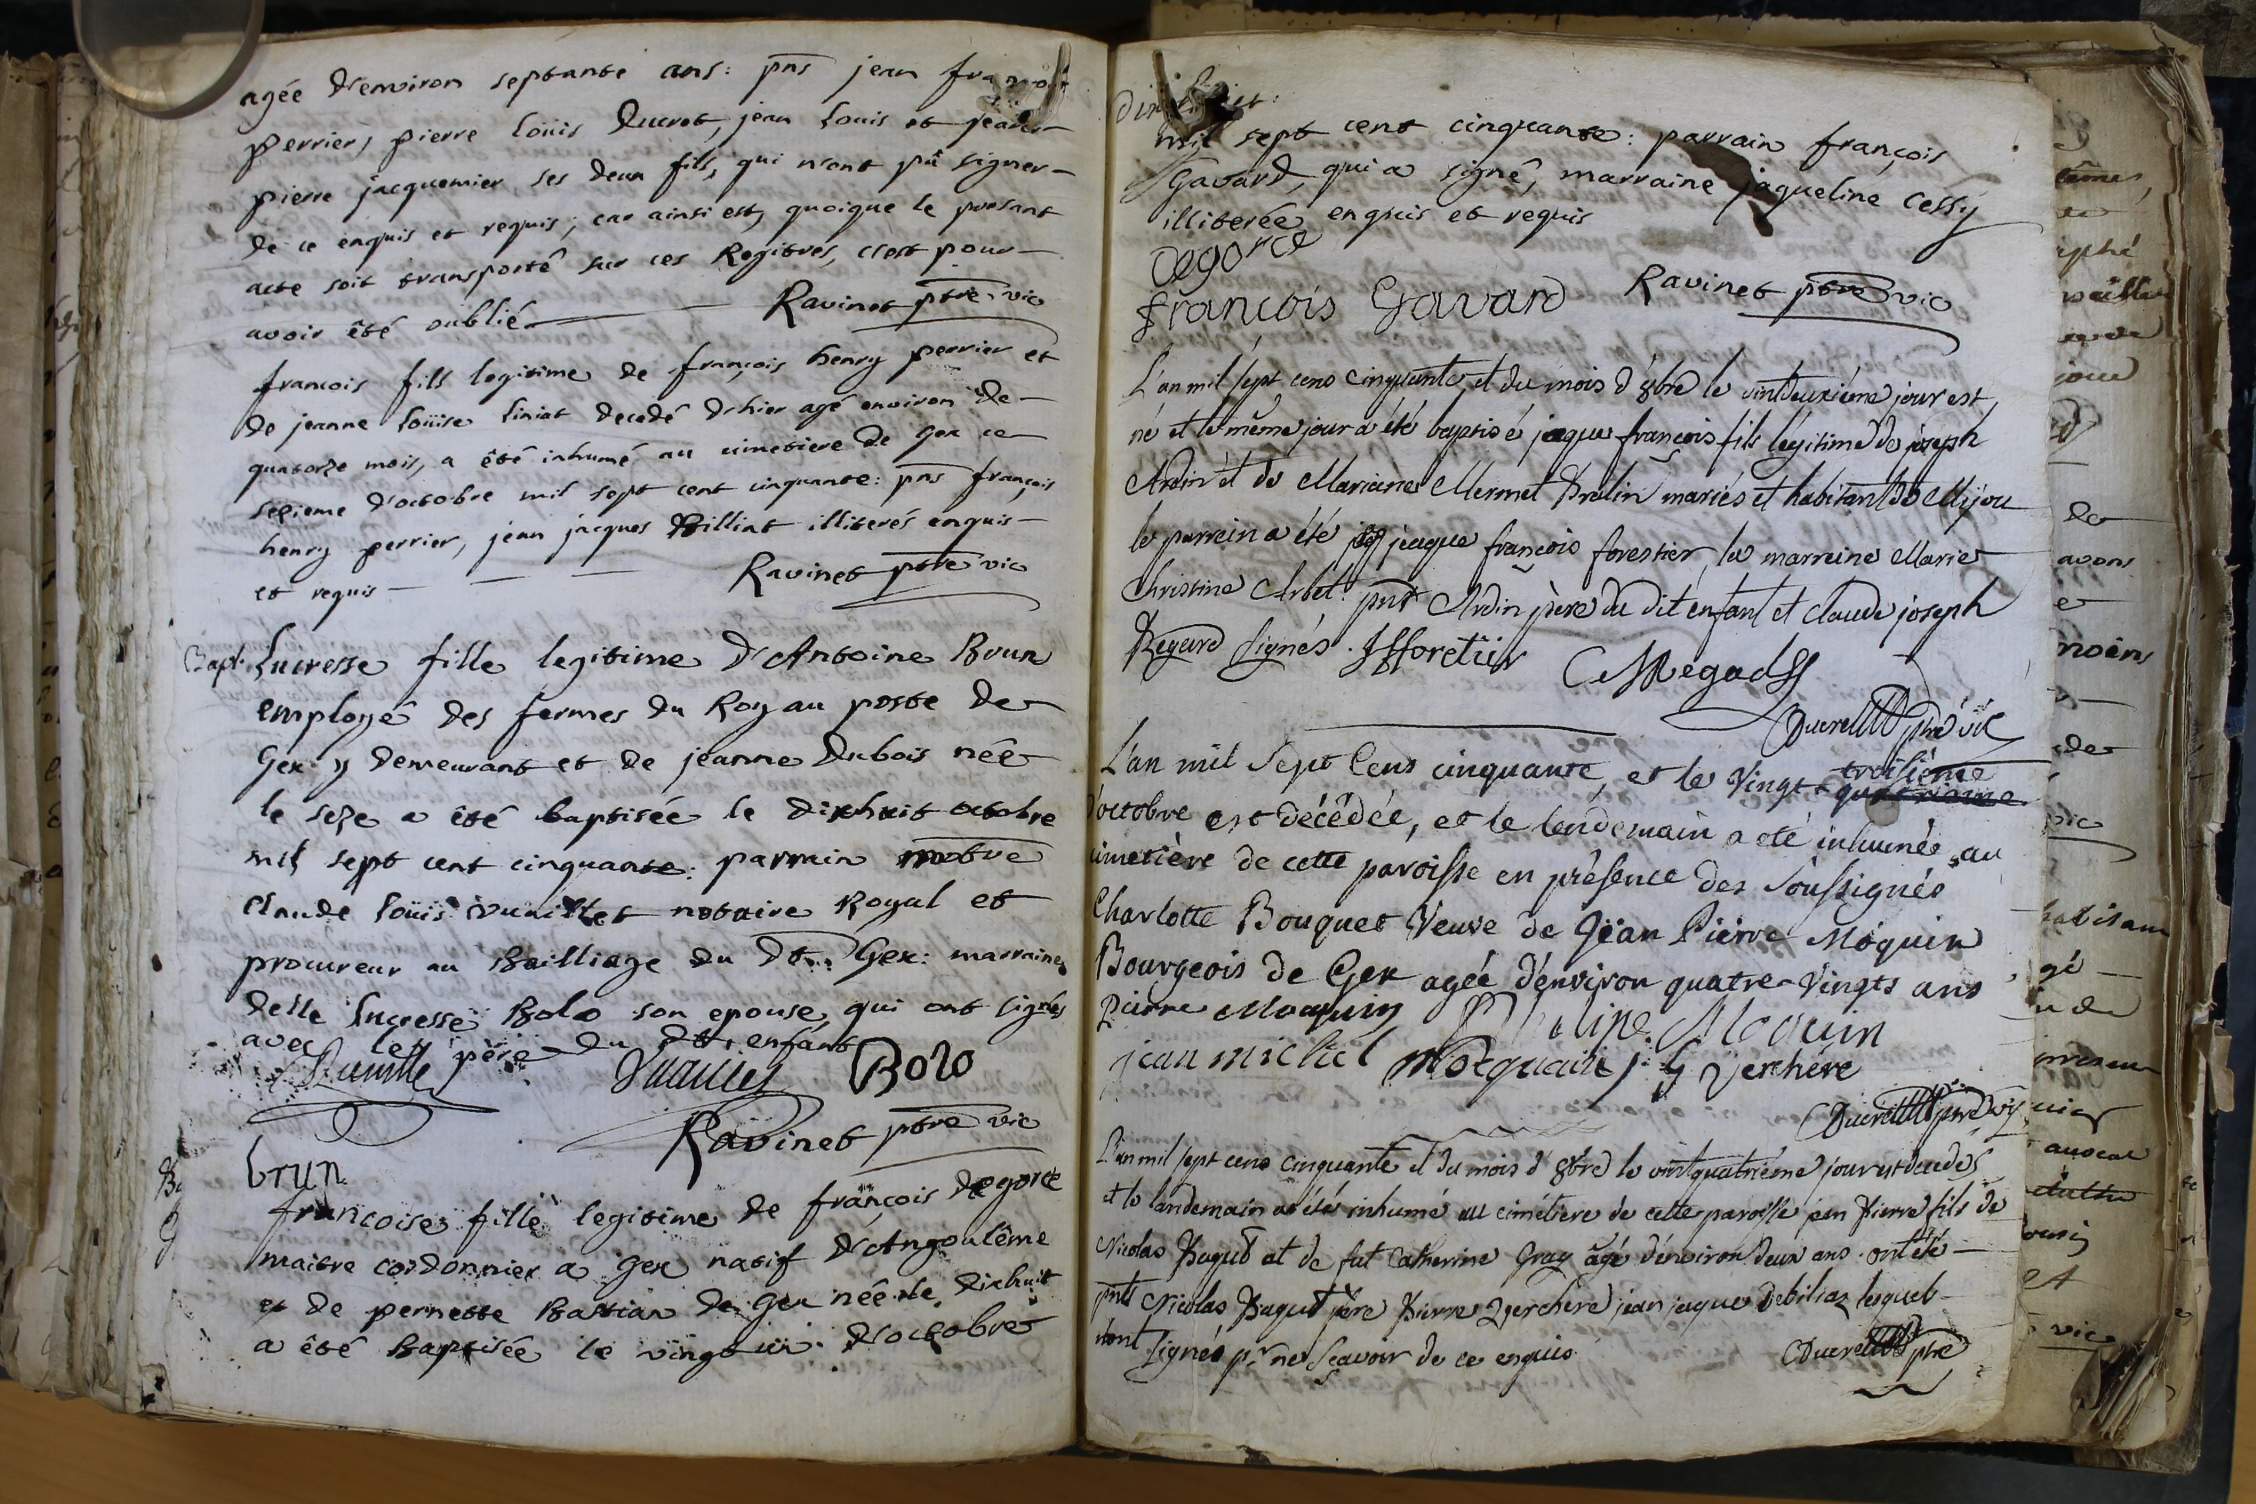 agée d'environ septante ans: pns jean françois
perrier, pierre loüis Ducret, jean louis et jean
pierre jacquemier ses deux fils, qui n'ont pû signer
de ce enquis et requis; car ainsi est, quoique le presant
acte soit transporté sur ces Regitres, c'est pour
avoir êté oublié Ravinet ptre vic
francois fils legitime de françois henry perrier et
de jeanne loüise liniat decedé d'hier agé environ de
quatorze mois, a êté inhumé au cimetiere de gex ce
sezieme d'octobre mil sept cent cinquante: pns françois
henry perrier, jean jacques Billiat illiterés enquis
et requis Ravinet ptre vic
Bapt. Lucresse fille legitime d'Antoine Brun
employé des fermes du Roy au poste de
Gex y demeurant et de jeanne Dubois née
le seze a êté baptisée le dixhuit octobre
mil sept cent cinquante: parrain
Claude loüis vuaillet notaire Royal et
procureur au Bailliage du dt. Gex: marraine
delle lucresse Bolo son epouse, qui ont signés
avec le père du dt. enfant
Bolo
Ravinet ptre vic
brun
francoise fille legitime de françois degorce
maitre cordonnier a Gex natif d'Angoulême
et de pernette Bastian de Gex née le dixhuit
a êté Baptisée le vingt un d'octobre
mil sept cent cinquante: parrain françois
Gavard, qui a signé, marraine jaqueline Cessÿ
illiterée enquis et requis
degorce
françois Gavard Ravinet ptre vic
L'an mil sept cens cinquante et du mois d'8bre le vintdeuxiéme jour est
né et le même jour a été baptisé jaque françois fils légitime de joseph
Ardin et de Mariane Mermet Pralin mariés et habitant de Mijou
le parrein a été jaque françois forestier, la marreine Marie
Christine Arbel. pnt Ardin père du dit enfant et claude joseph
Regard signés. Jfforetiir
Ducrett ptre vic
L'an mil Sept Cens cinquante, et le Vingt troisième quatrieme
d'octobre est décédée, et le lendemain a été inhumée au
cimetière de cette paroisse en présence des soussignés
Charlotte Bouquet Veuve de Jean Pierre Moquin
Bourgeois de Gex agée d'environ quatre-Vingts ans
Pierre Moquin
jean michel J G Verchére
Ducrett ptre vic
L'an mil sept cens cinquante et du mois d'8bre le vintquatriéme jour est decedé
et le landemain a été inhumé au cimétiere de cette paroisse jean Pierre fils de
Nicolas Paget et de fut Catherine Gray âgé d'environ deux ans. ont été
pnts Nicolas Paget père Pierre Verchere jean jaque Debilias lesquels
n'ont signés pr ne scavoir de ce enquis Ducrett ptre